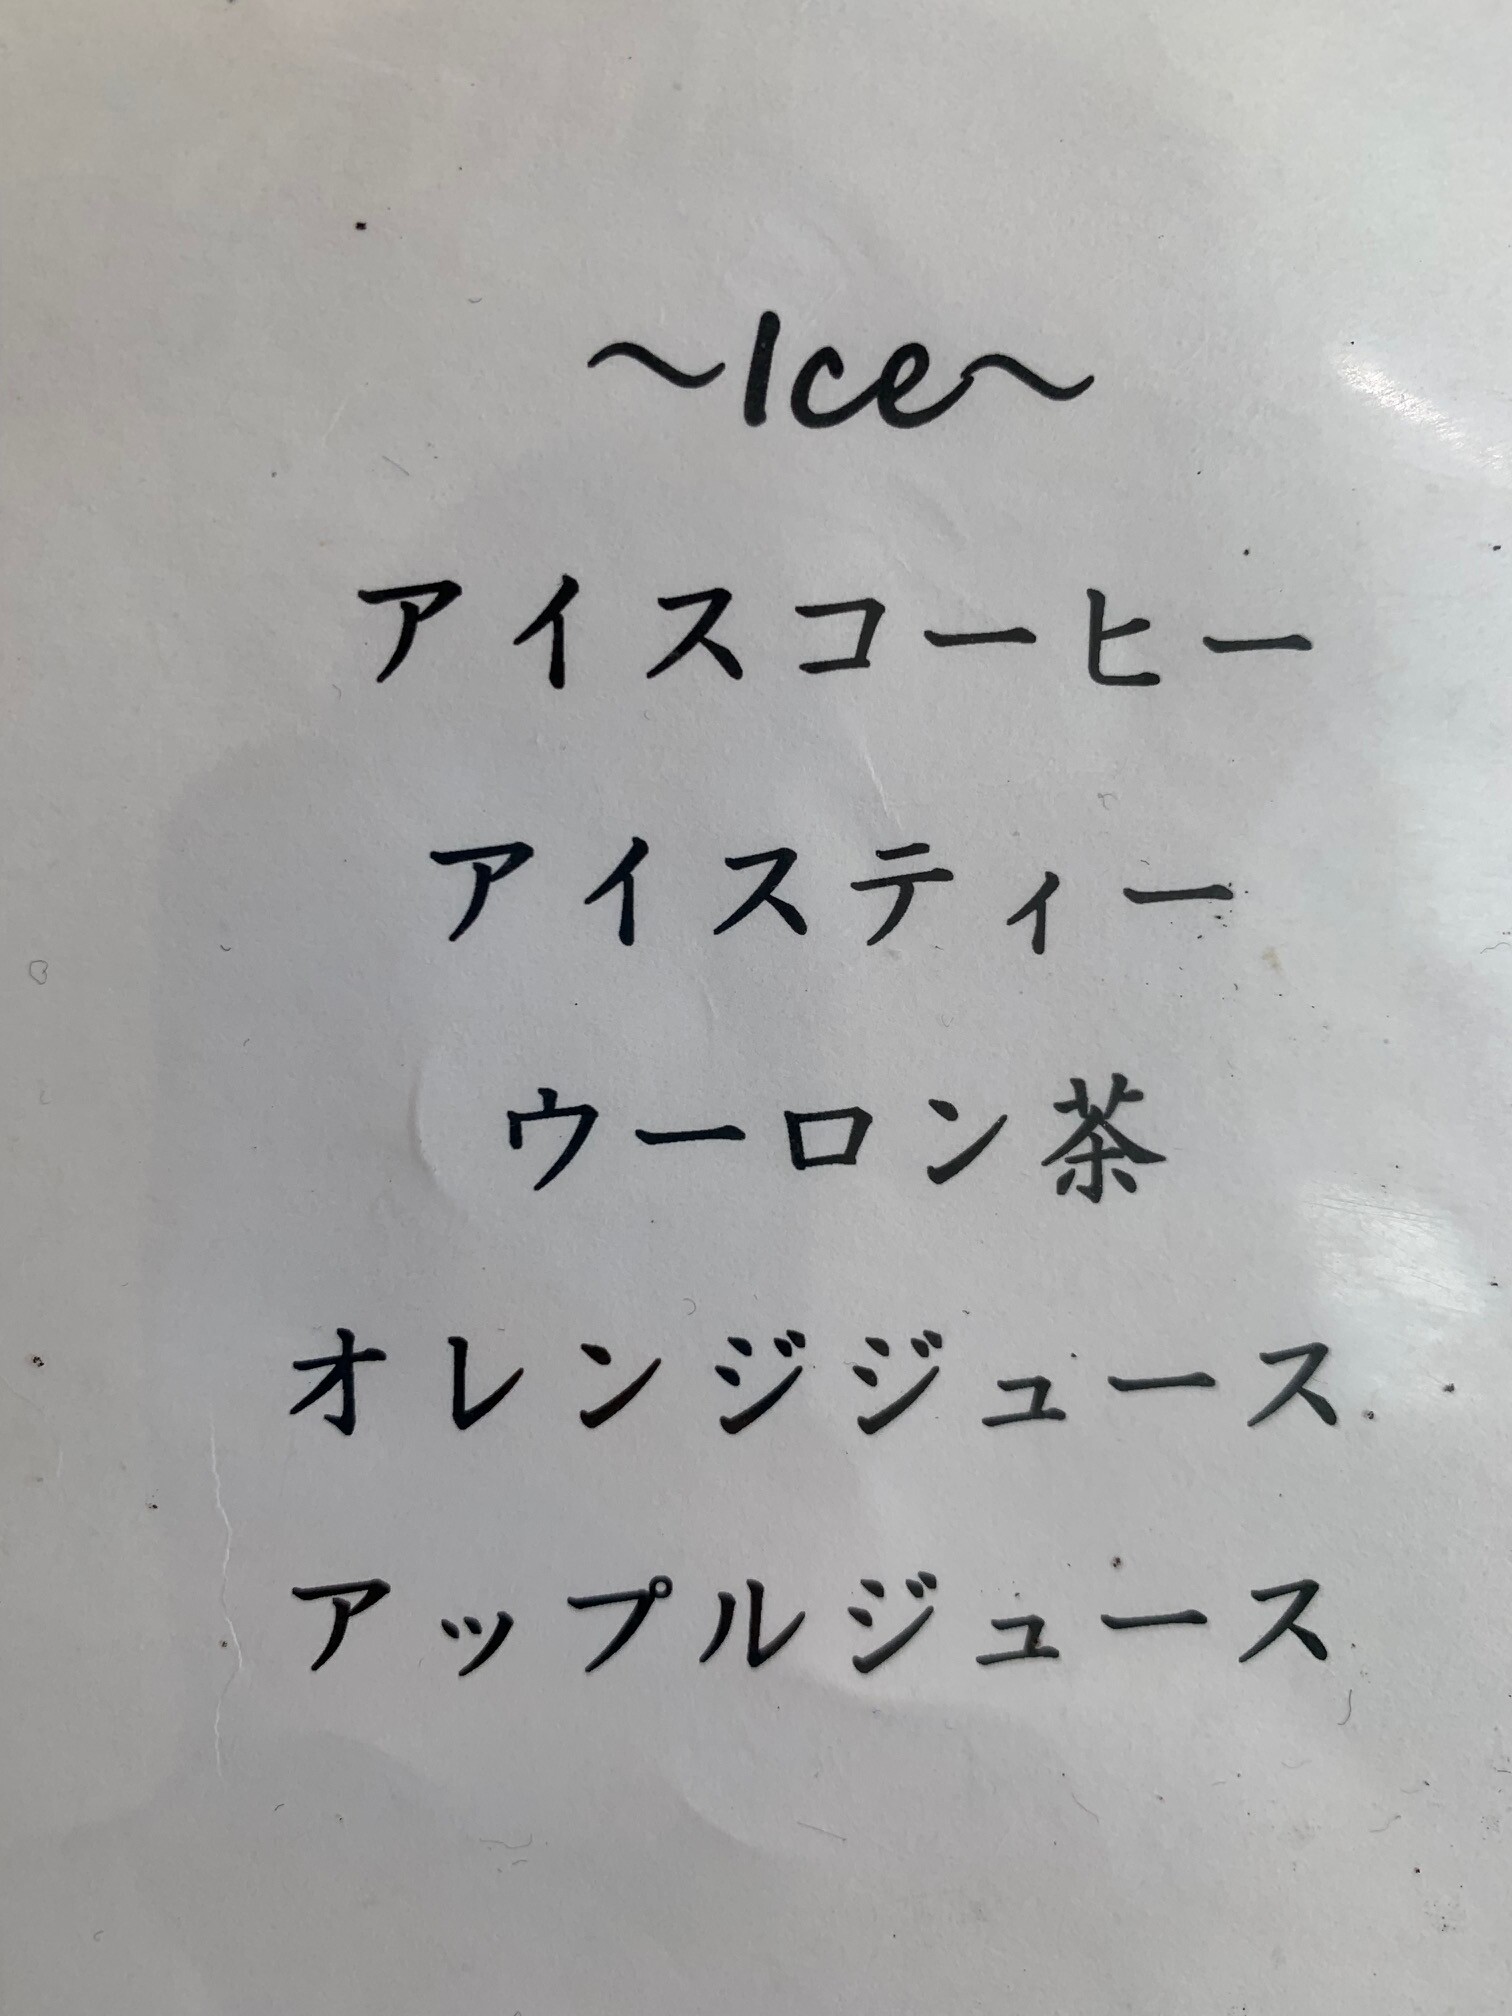 ～Ice～
アイスコーヒー
アイスティー
ウーロン茶
オレンジジュース
アップルジュース